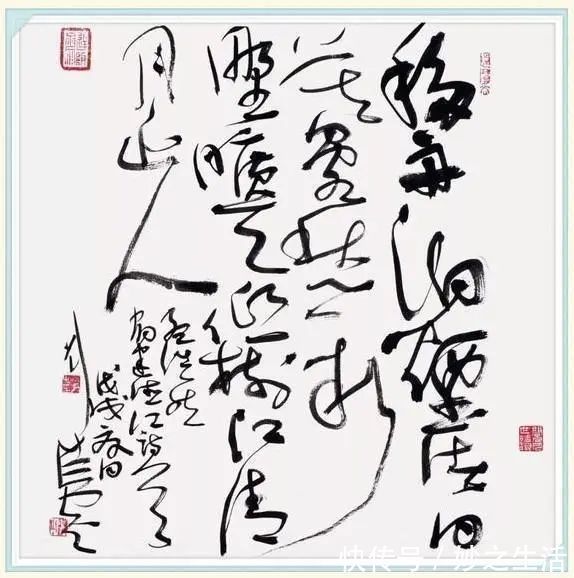 移舟泊煙渚日
暮客愁新
野曠天低樹江清
月近人
孟浩然
宿建德江詩一首
戊戌
快传号/妙之生活